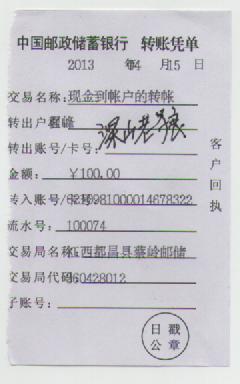 中国邮政储蓄银行 转账凭单
2013 年4 月15 日
交易名称:现金到帐户的转帐
转出户名:
深山老狼
转出账号/卡号:
金额: ¥100.00
转入账号/卡号:981000014678322
流水号: 100074
交易局名称:江西都昌县蔡岭邮储
交易局代码:360428012
子账号:
客户回执
日戳
公章